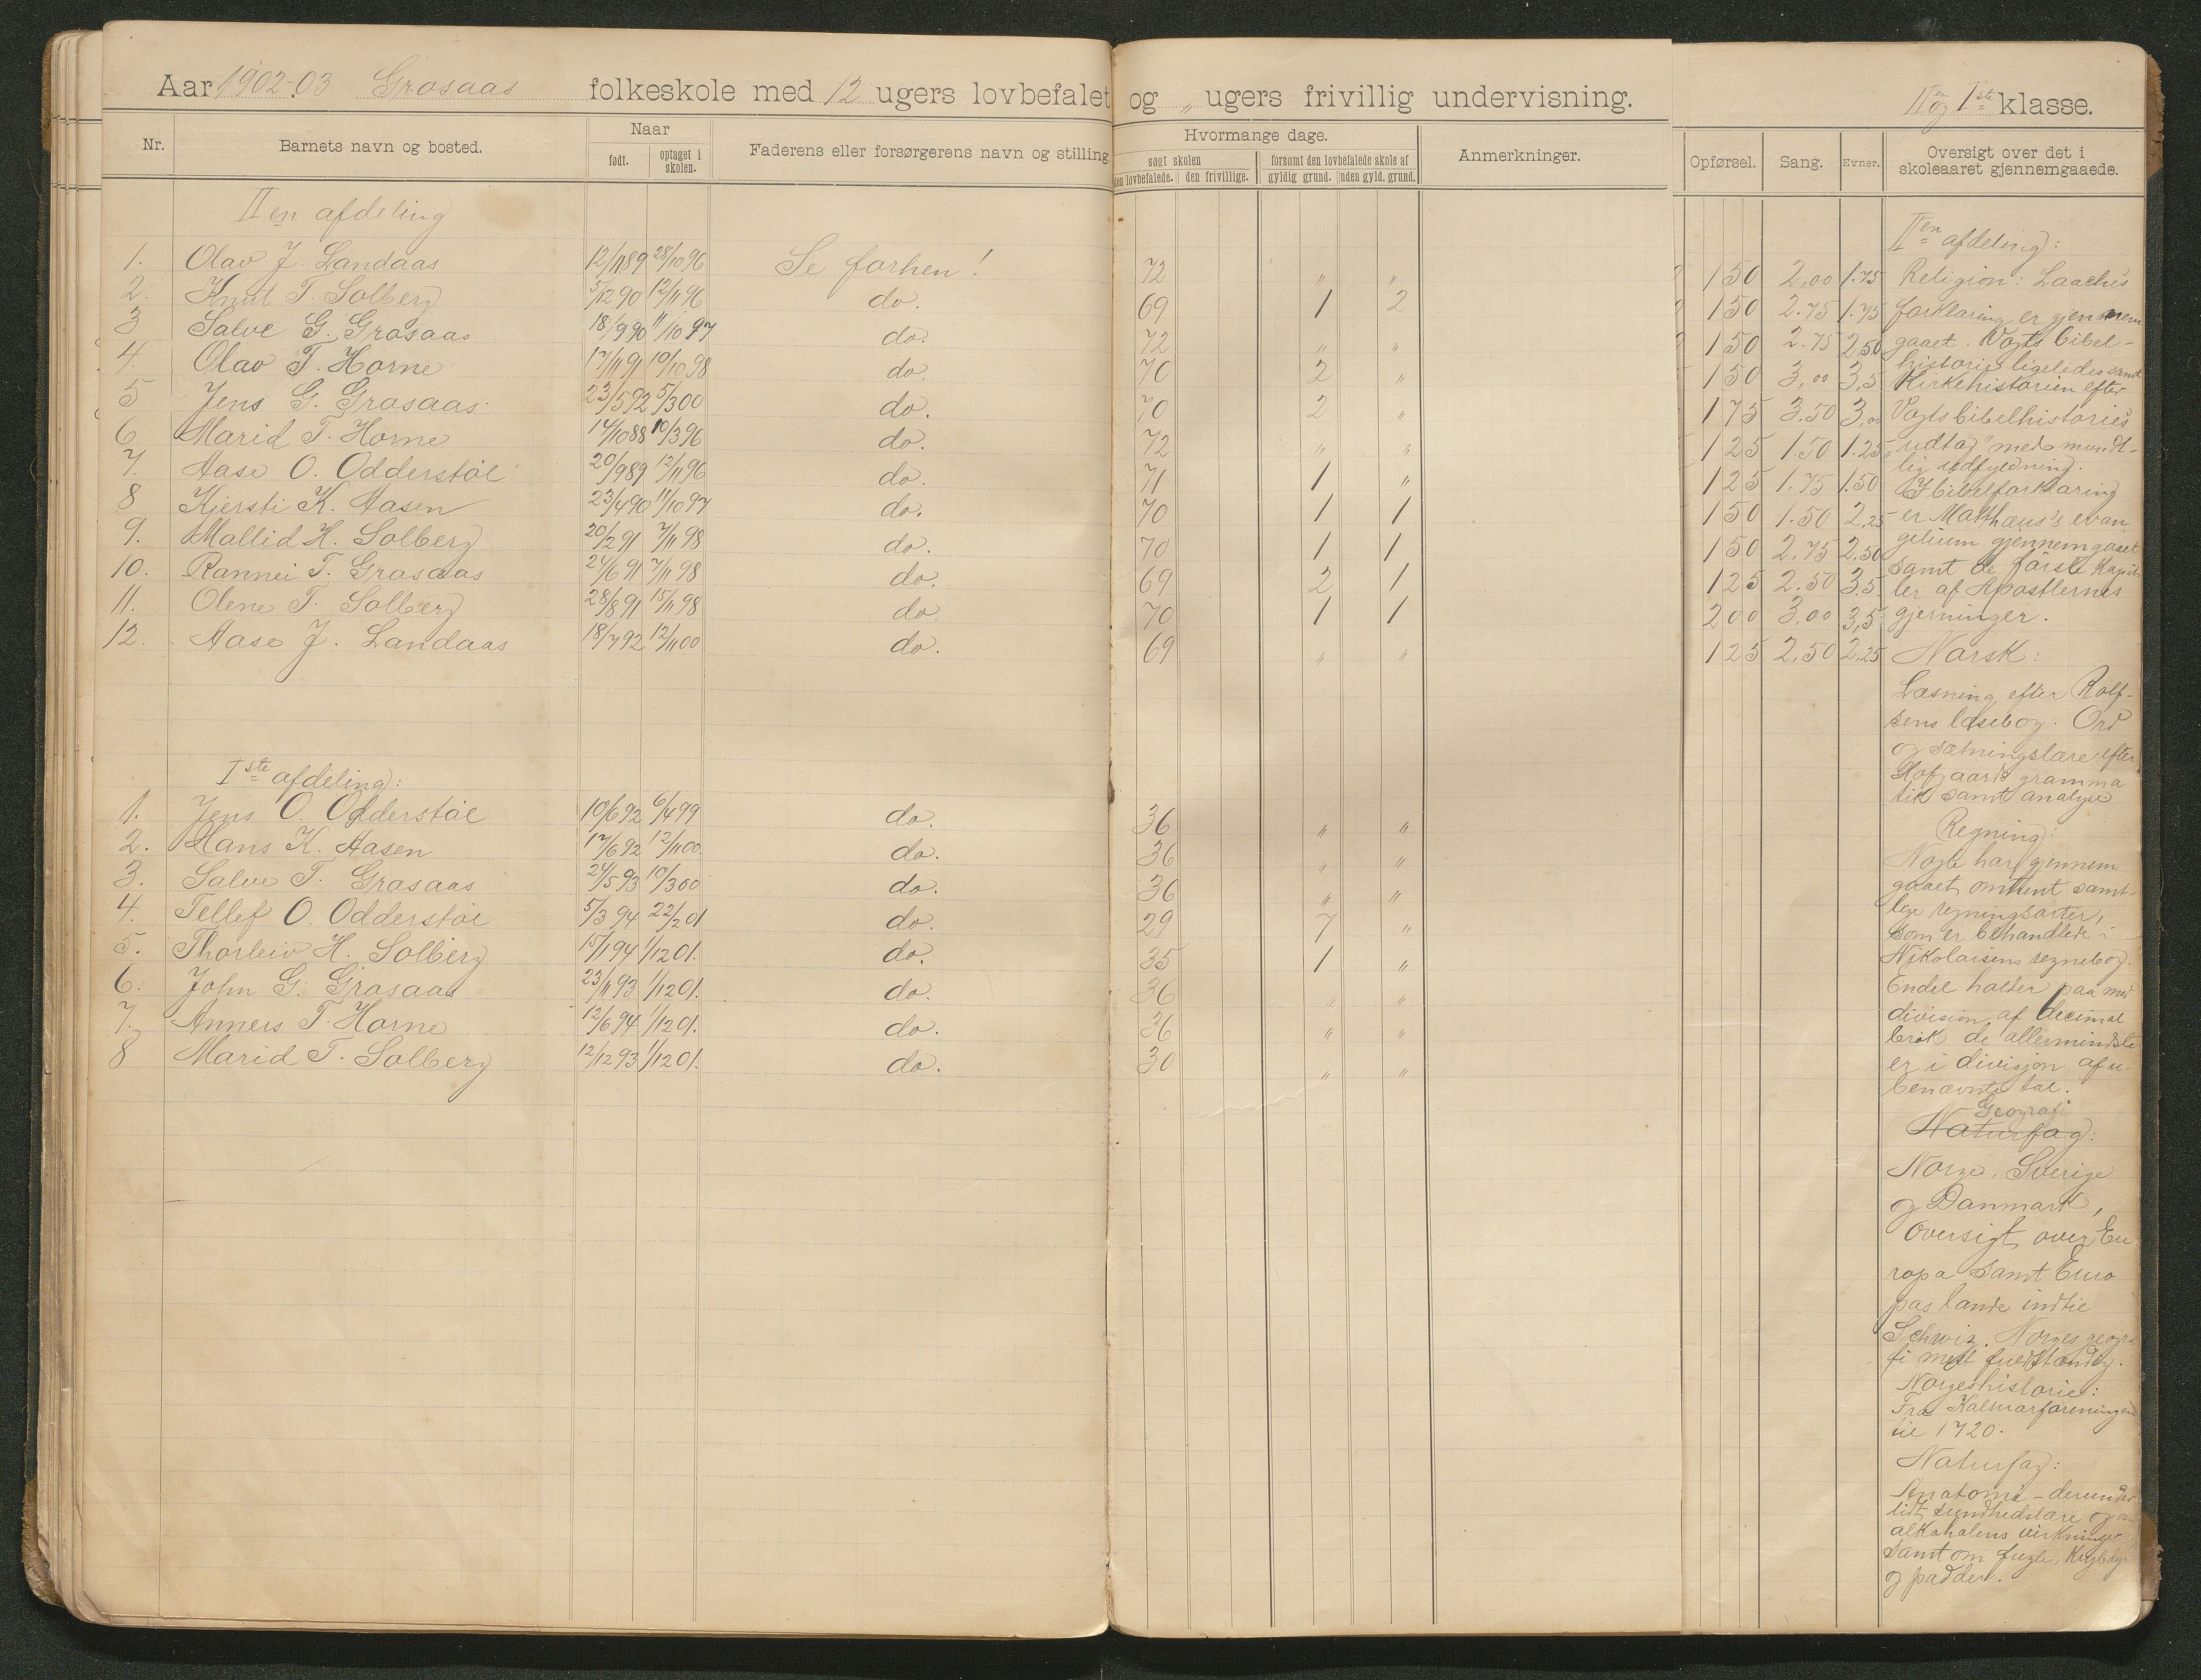 Aar 1902-03 Grosaas folkeskole med 12 ugers lovbefalet og „ ugers frivillig undervisning. II en og I ste klasse.
Nr. Barnets navn og bosted. Naar født. optaget i skolen. Faderens eller forsørgerens navn og stilling
Hvormange dage. søgt skolen den lovbefalede. den frivillige. forsømt den lovbefalede skole af gyldig grund. uden gyld. grund. Anmerkninger.
Opførsel. Sang. Evner. Oversigt over det i skoleaaret gjennemgaaede.
II en afdeling
1. Olav J. Landaas 12/11 89 28/10 96 Se forhen! 72 „ „ 1 50 2,00 1.75
2. Knut T. Solberg 5/12 90 12/11 96 do. 69 1 2 1 50 2.75 1.75
3 Salve G. Grosaas 18/9 90 11/10 97 do. 72 „ „ 1 50 2.75 2,50
4. Olav T. Horne 17/11 91 10/10 98 do. 70 2 „ 1 50 3,00 3,5
5 Jens G. Grosaas 23/5 92 5/3 00 do. 70 2 „ 1 75 3.50 3,00
6 Marid T. Horne 14/10 88 10/3 96 do. 72 „ „ 1 25 1.50 1.25
7. Aase O. Odderstøl 20/9 89 12/11 96 do. 71 1 „ 1 25 1.75 1.50
8 Kjersti K. Aasen 23/4 90 11/10 97 do. 70 1 1 1 50 1.50 2,25
9. Mallid H. Solberg 20/2 91 7/11 98 do. 70 1 1 1 50 2.75 2.50
10. Rannei T. Grosaas 24/6 91 7/11 98 do. 69 2 1 1 25 2.50 3.5
11. Olene T. Solberg 28/8 91 15/11 98 do. 70 1 1 2 00 3,00 3,5
12. Aase J. Landaas 18/7 92 12/11 00 do. 69 „ „ 1 25 2,50 2,25
I ste afdeling:
1. Jens O. Odderstøl 10/6 92 6/4 99 do. 36 „ „
2. Hans K. Aasen 17/6 92 12/11 00. do. 36 „ „
3. Salve T. Grosaas 24/5 93 10/3 00 do. 36 „ „
4. Tellef O. Odderstøl 5/3 94 22/2 01 do. 29 7 „
5. Thorleiv H. Solberg 15/1 94 1/12 01. do. 35 1 „
6. John G. Grosaas 23/11 93 1/12 01. do. 36 „ „
7. Anners T. Horne 12/6 94 1/12 01. do. 36 „ „
8 Marid T. Solberg 12/12 93 1/12 01. do. 30 „ „
II en afdeling:
Religion: Laaches
forklaring er gjennem
gaaet. Vogts bibel-
historie ligeledes samt
Kirkehistorien efter
Vogts bibelhistories
„udtog" med mundt-
lig udfyldning.
I bibelforklaring
er Matthæus's evan
gelium gjennemgaaet
samt de første kapit
ler af Apostlernes
gjerninger.
Norsk:
Læsning efter Rolf-
sens læsebog. Ord
og sætningslære efter
Hofgaards gramma
tik samt analyse
Regning:
Nogle har gjennem
gaaet omtrent samt-
lige regningsarter,
som er behandlede i
Nikolaisens regnebog.
Endel holder paa med
division af decimal
brøk de allermindste
er i division af u-
benævnte tal.
Geografi
Naturfag:
Norge, Sverige
og Danmark,
Oversigt over Eu
ropa samt Euro
pas lande indtil
Schweiz. Norges geogra
fi mest fuldstændig.
Norgeshistorie:
Fra Kalmarforeningen
til 1720.
Naturfag:
Anatomi - derunder
lidt sundhedslære og om
alkoholens virkninger
samt om fugle, Krybdyr
og padder.